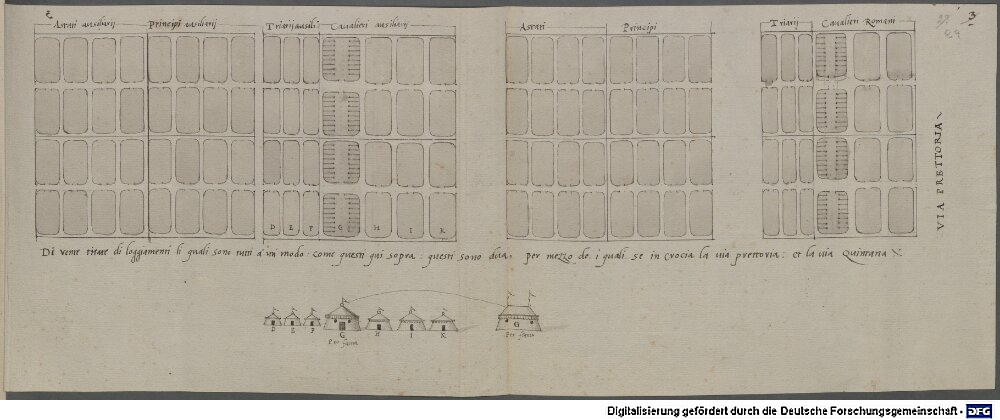 Astati ausiliarij Principi ausiliarij Triarij ausili Cavalieri ausiliarij Astati Principi Triarij Cavalieri Romani 3
VIA PRETTORIA
D E F G H I K
Di venti tirate di loggiamenti li quali sono tutti a un modo come questi qui sopra: questi sono per mezzo de i quali se in crocia la via prettoria: et la via Quintana
D E F G H I K G
Per fianco
Digitalisierung gefördert durch die Deutsche Forschungsgemeinschaft - DFG